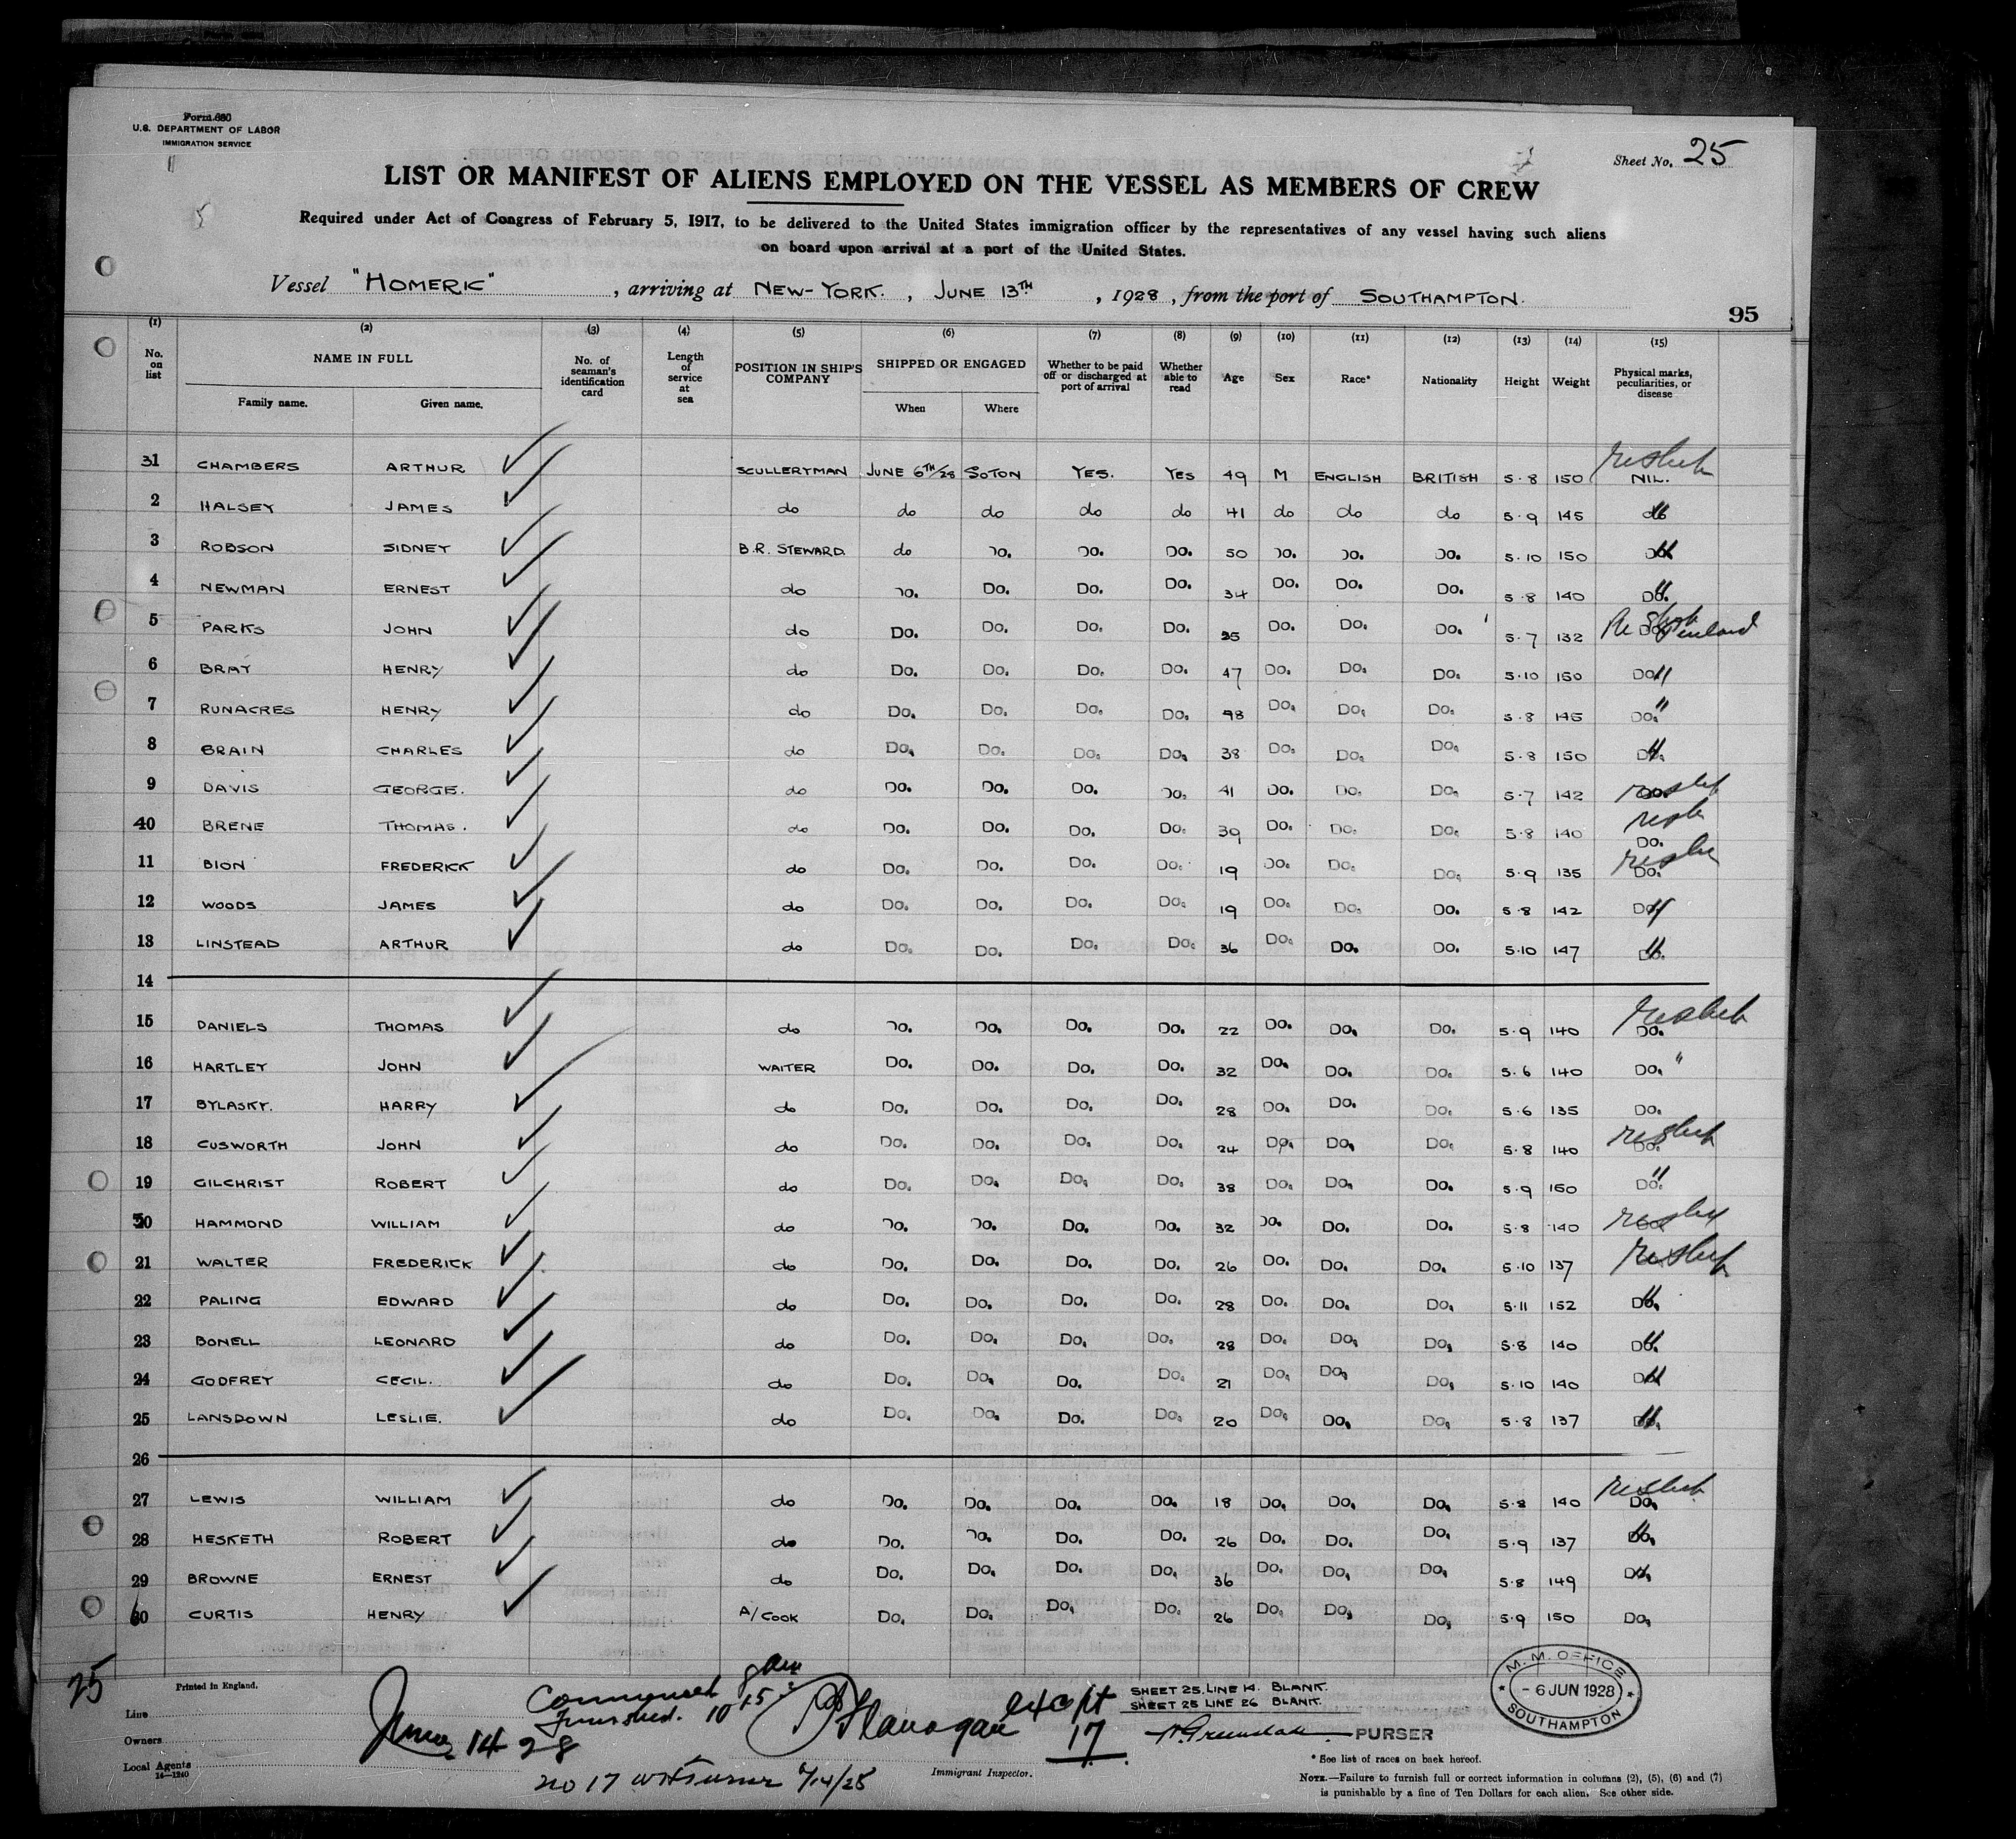 Form 680
U.S. DEPARTMENT OF LABOR
IMMIGRATION SERVICE
Sheet No. 25
LIST OR MANIFEST OF ALIENS EMPLOYED ON THE VESSEL AS MEMBERS OF CREW
Required under Act of Congress of February 5, 1917, to be delivered to the United States immigration officer by the representatives of any vessel having such aliens
on board upon arrival at a port of the United States.
Vessel "HOMERIC", arriving at NEW-YORK., JUNE 13TH, 1928, from the port of SOUTHAMPTON.
95
(1) (2) (3) (4) (5) (6) (7) (8) (9) (10) (11) (12) (13) (14) (15)
No. on list NAME IN FULL Family name. Given name. No. of seaman's identification card Length of service at sea POSITION IN SHIP'S COMPANY SHIPPED OR ENGAGED When Where Whether to be paid off or discharged at port of arrival Whether able to read Age Sex Race* Nationality Height Weight Physical marks, peculiarities, or disease
31 CHAMBERS ARTHUR SCULLERYMAN JUNE 6TH/28 SOTON YES. YES 49 M ENGLISH BRITISH 5.8 150 NIL.
2 HALSEY JAMES do do do do do 41 do do do 5.9 145 do
3 ROBSON SIDNEY B.R. STEWARD do Do. Do. Do. 50 Do. Do. Do. 5.10 150 Do.
4 NEWMAN ERNEST do Do. Do. Do. Do. 34 Do. Do. Do. 5.8 140 Do.
5 PARKS JOHN do Do. Do. Do. Do. 25 Do. Do. Do. 5.7 132 Do.
6 BRAY HENRY do Do. Do. Do. Do. 47 Do. Do. Do. 5.10 150 Do.
7 RUNACRES HENRY do Do. Do. Do. Do. Do. Do. Do. 5.8 145 Do.
8 BRAIN CHARLES do Do. Do. Do. Do. 38 Do. Do. Do. 5.8 150 Do.
9 DAVIS GEORGE. do Do. Do. Do. Do. 41 Do. Do. Do. 5.7 142 Do.
40 BRENE THOMAS. do Do. Do. Do. Do. 39 Do. Do. Do. 5.8 140 Do.
11 BION FREDERICK do Do. Do. Do. Do. 19 Do. Do. Do. 5.9 135 Do.
12 WOODS JAMES do Do. Do. Do. Do. 19 Do. Do. Do. 5.8 142 Do.
13 LINSTEAD ARTHUR do Do. Do. Do. Do. 36 Do. Do. Do. 5.10 147 Do.
14
15 DANIELS THOMAS do Do. Do. Do. Do. 22 Do. Do. Do. 5.9 140 Do.
16 HARTLEY JOHN WAITER Do. Do. Do. Do. 32 Do. Do. Do. 5.6 140 Do. "
17 BYLASKY. HARRY do Do. Do. Do. Do. 28 Do. Do. Do. 5.6 135 Do.
18 CUSWORTH JOHN do Do. Do. Do. Do. 24 Do. Do. Do. 5.8 140 Do.
19 GILCHRIST ROBERT do Do. Do. Do. Do. 38 Do. Do. Do. 5.9 150 Do. "
50 HAMMOND WILLIAM do Do. Do. Do. Do. 32 Do. Do. Do. 5.8 140
21 WALTER FREDERICK do Do. Do. Do. Do. 26 Do. Do. Do. 5.10 137
22 PALING EDWARD do Do. Do. Do. Do. 28 Do. Do. Do. 5.11 152 Do.
23 BONELL LEONARD do Do. Do. Do. Do. 28 Do. Do. Do. 5.8 140 Do.
24 GODFREY CECIL. do Do. Do. Do. Do. 21 Do. Do. Do. 5.10 140 Do.
25 LANSDOWN LESLIE. do Do. Do. Do. Do. 20 Do. Do. Do. 5.8 137 Do.
26
27 LEWIS WILLIAM do Do. Do. Do. Do. 18 Do. Do. Do. 5.8 140 Do.
28 HESKETH ROBERT do Do. Do. Do. Do. 26 Do. Do. Do. 5.9 137 Do.
29 BROWNE ERNEST do Do. Do. Do. Do. 36 Do. Do. Do. 5.8 149 Do.
60 CURTIS HENRY A/COOK Do. Do. Do. Do. 26 Do. Do. Do. 5.9 150 Do.
25
Printed in England.
Line
Owners
Local Agents
14-1240
Commenced 9 am
Finished. 10 15
June 14-28
Flanagan except 17
no 17 6/14/28
Immigrant Inspector.
SHEET 25. LINE 14. BLANK.
SHEET 25 LINE 26 BLANK.
PURSER
M.M. OFFICE
- 6 JUN 1928
SOUTHAMPTON
* See list of races on back hereof.
NOTE.—Failure to furnish full or correct information in columns (2), (5), (6) and (7)
is punishable by a fine of Ten Dollars for each alien. See other side.